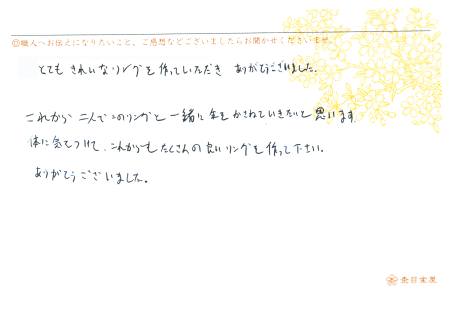 ⑪職人へお伝えになりたいこと、ご感想などございましたらお聞かせくださいませ。
とても きれいなリングを作っていただき ありがとうございました。
これから二人でこのリングと一緒に年をかさねていきたいと思います
体に気をつけて、これからもたくさんの良いリングを作って下さい。
ありがとうございました。
杢目金屋